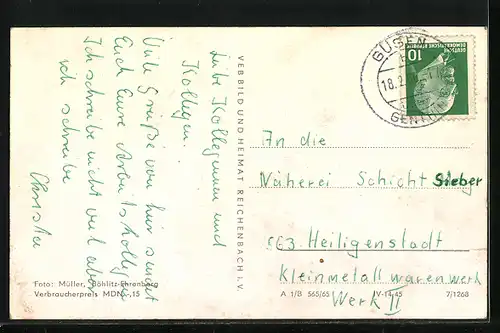 Liebe Kolleginnen und
Kollegen.
Viele Grüße von hier sendet
Euch Eure Arbeitskollegin
Ich schreibe nicht viel aber
ich schreibe
Christa
Foto: Müller, Böhlitz-Ehrenberg
Verbraucherpreis MDN -,15
VEB BILD UND HEIMAT REICHENBACH i. V.
DEUTSCHE
DEMOKRATISCHE REPUBLIK
10
GÜSEN
18.2.
GENTHIN
An die
Näherei Schicht Sieber
563 Heiligenstadt
Kleinmetallwarenwerk
Werk II
A 1/B 565/65 IV-14-45 7/1268